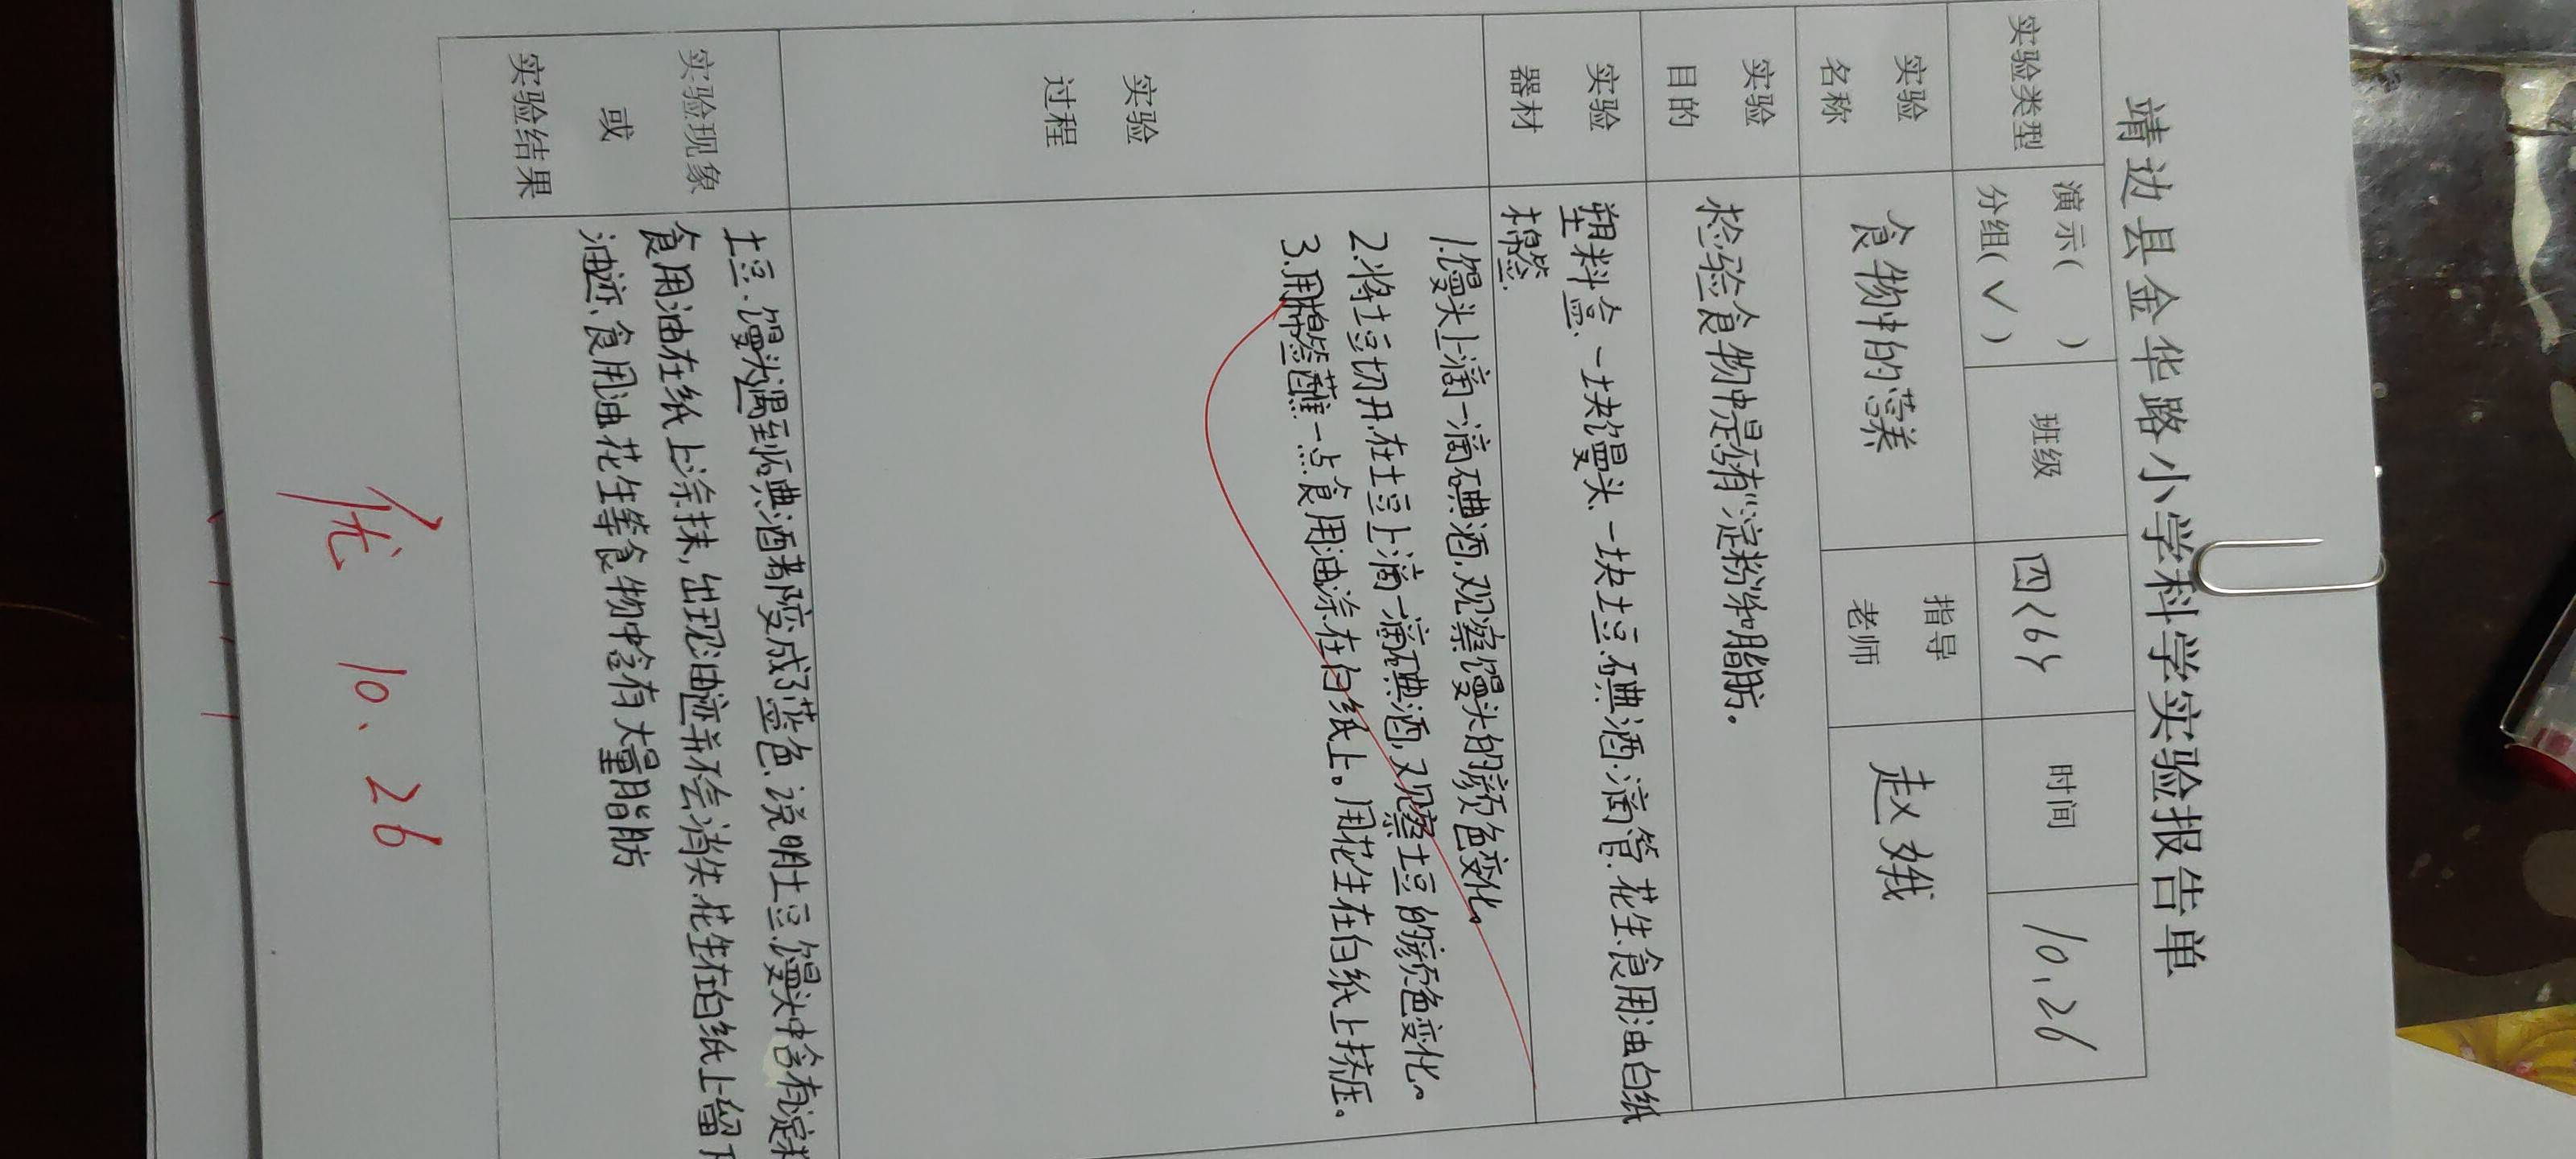 靖边县金华路小学科学实验报告单
实验类型 演示( ) 分组(√) 班级 四(6) 时间 10.26
实验名称 食物中的营养 指导老师 赵娥
实验目的 检验食物中是否有淀粉和脂肪。
实验器材 塑料盒、一块馒头、一块土豆.碘酒.滴管.花生.食用油.白纸
棉签.
实验过程 1.馒头上滴一滴碘酒,观察馒头的颜色变化。
2.将土豆切开,在土豆上滴一滴碘酒,观察土豆的颜色变化。
3.用棉签蘸一点食用油涂在白纸上。用花生在白纸上挤压。
实验现象或实验结果 土豆、馒头遇到碘酒都变成了蓝色.说明土豆.馒头中含有淀粉
食用油在纸上涂抹,出现油迹并不会消失.花生在白纸上留下
油迹、食用油花生等食物中含有大量脂肪
优 10、26